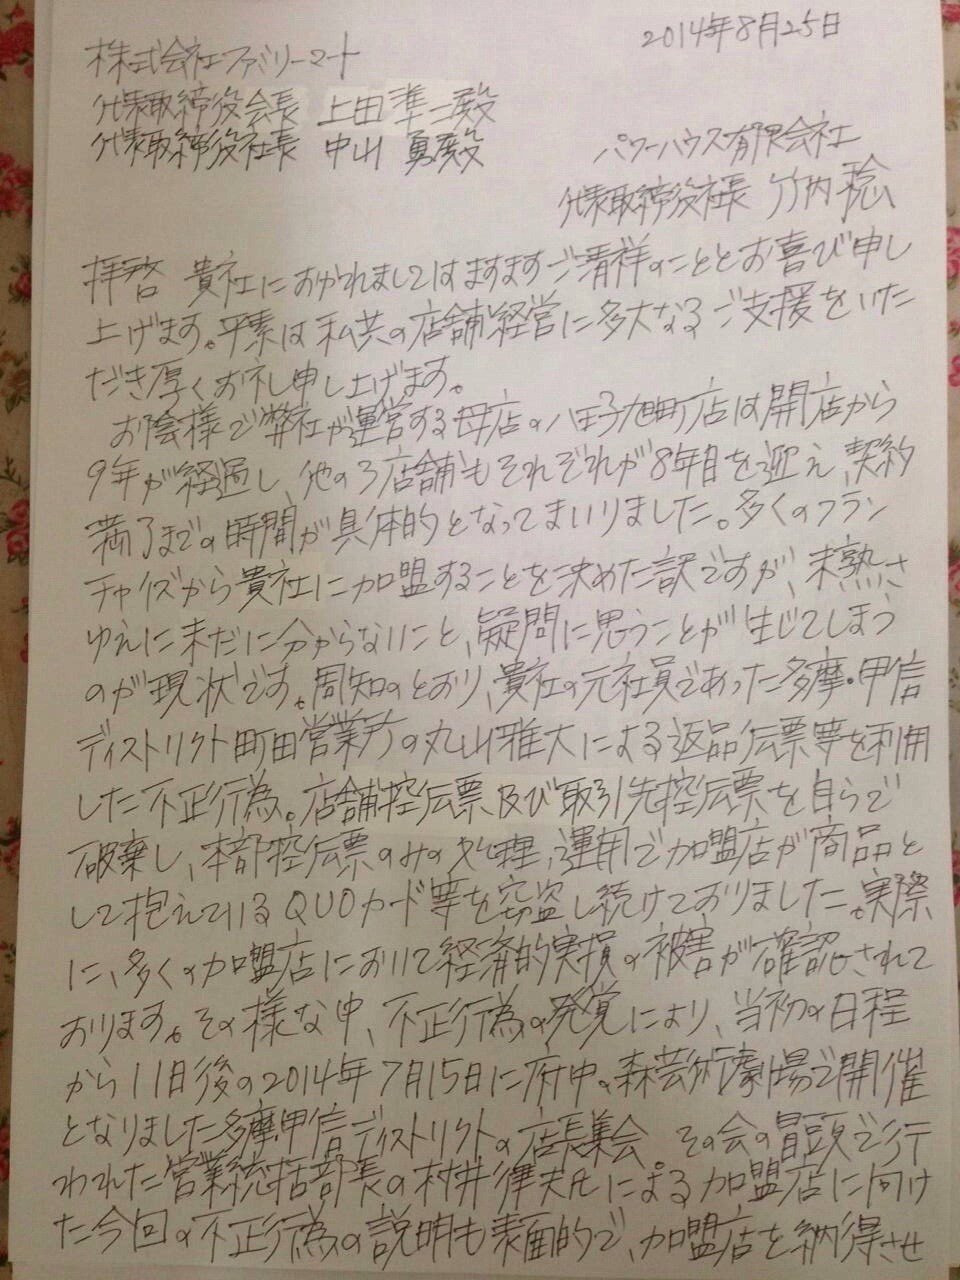 2014年8月25日
株式会社ファミリーマート
代表取締役会長 上田準二殿
代表取締役社長 中山 勇殿
パワーハウス有限会社
代表取締役社長 竹内 稔
拝啓 貴社におかれましてはますますご清祥のこととお喜び申し
上げます。平素は私共の店舗経営に多大なるご支援をいた
だき厚くお礼申し上げます。
お陰様で弊社が運営する母店の八王子旭町店は開店から
9年が経過し、他の3店舗もそれぞれが8年目を迎え、契約
満了までの時間が具体的となってまいりました。多くのフラン
チャイズから貴社に加盟することを決めた訳ですが、未熟さ
ゆえに未だに分からないこと、疑問に思うことが生じてしまう
のが現状です。周知のとおり、貴社の元社員であった多摩・甲信
ディストリクト町田営業所の丸山雅大による返品伝票等を利用
した不正行為。店舗控伝票及び取引先控伝票を自らで
破棄し、本部控伝票のみの処理、運用で加盟店が商品と
して抱えているQUOカード等を窃盗し続けておりました。実際
に、多くの加盟店において経済的実損の被害が確認されて
おります。その様な中、不正行為の発覚により、当初の日程
から11日後の2014年7月15日に府中の森芸術劇場で開催
となりました多摩・甲信ディストリクトの店長集会。その会の冒頭で行
われた営業統括部長の村井律夫氏による加盟店に向け
た今回の不正行為の説明も表面的で、加盟店を納得させ